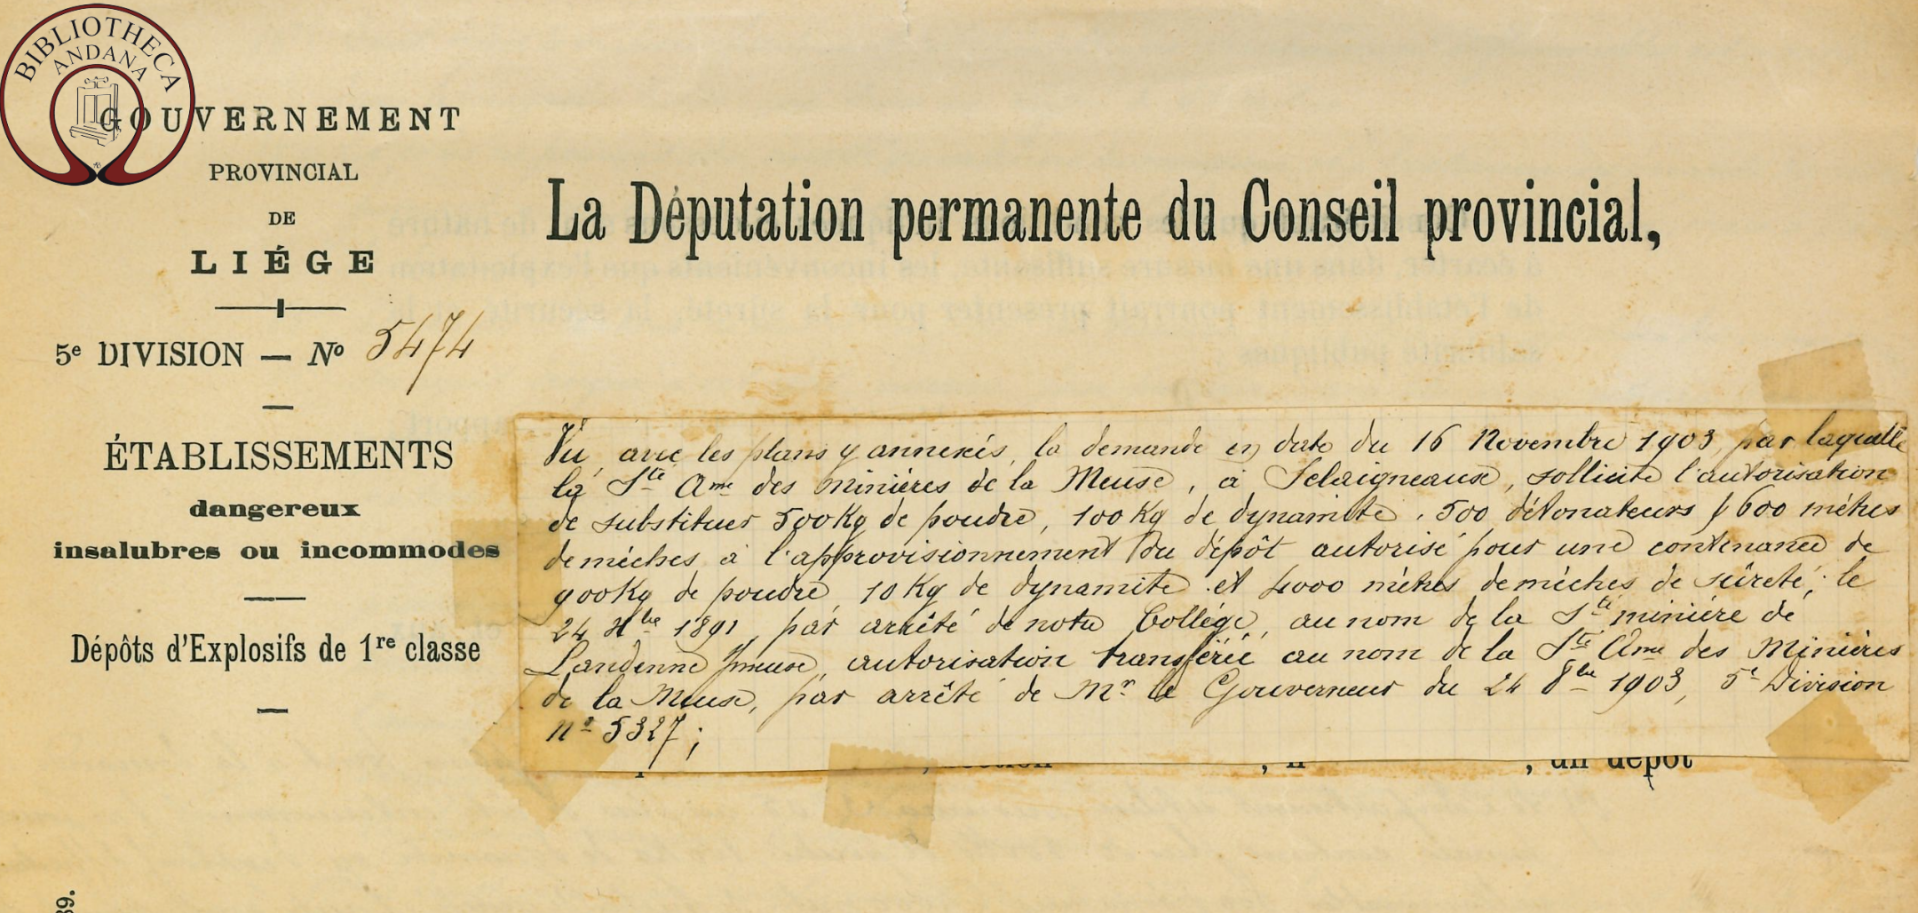 BIBLIOTHECA
ANDANA
GOUVERNEMENT
PROVINCIAL
DE
LIÉGE
5e DIVISION — No 5474
ÉTABLISSEMENTS
dangereux
insalubres ou incommodes
Dépôts d'Explosifs de 1re classe
La Députation permanente du Conseil provincial,
Vu, avec les plans y annexés, la demande en date du 16 Novembre 1903, par laquelle
la Sté Ame des Minières de la Meuse, à Sclaigneaux, sollicite l'autorisation
de substituer 500 Kg de poudre, 100 Kg de dynamite, 500 détonateurs & 600 mètres
de mèches à l'approvisionnement du dépôt autorisé pour une contenance de
900 Kg de poudre, 10 Kg de dynamite et 4000 mètres de mèches de sûreté, le
24 Xbre 1891, par arrêté de notre Collège, au nom de la Sté minière de
Landenne s/meuse, autorisation transférée au nom de la Sté Ame des Minières
de la Meuse, par arrêté de Mr le Gouverneur du 24 8bre 1903, 5e Division
no 5327;
, un dépôt
39.